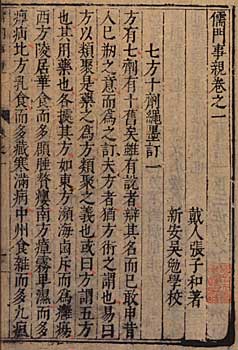 儒門事親卷之一
戴人張子和著
新安吳勉學校
七方十劑繩墨訂一
方有七劑有十舊矣雖有說者辯其名而已敢申昔
人已刱之意而爲之訂夫方者猶方術之謂也易曰
方以類聚是藥之爲方類聚之義也或曰方謂五方
也其用藥也各據其方如東方瀕海鹵斥而爲癰瘍
西方陵居華食而多頵腄贅癭南方瘴霧卑濕而多
痹疝北方乳食而多藏寒滿病中州食雜而多九疸